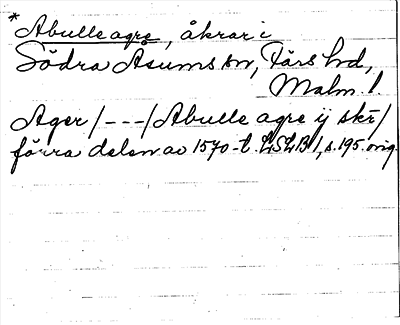 * Abulle agre, åkrar i
Södra Åsums sn, Färs hd,
Malm. l.
Ager /---/ Abulle agre ij skr /
förra delen av 1570-t. LSLB 1, s. 195 orig.